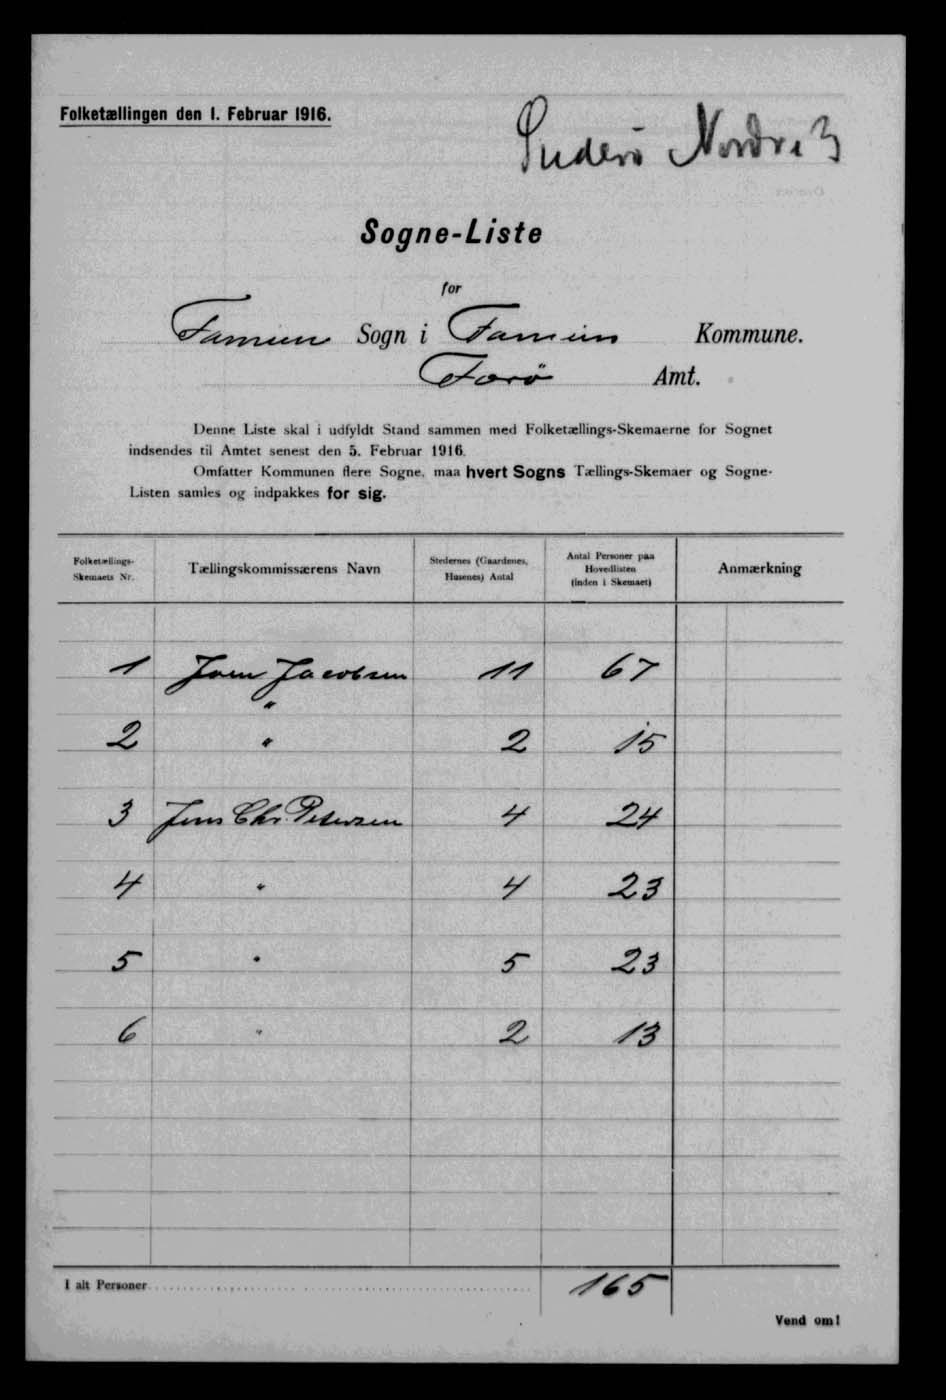 Folketællingen den 1. Februar 1916.
Suderö Nordre 3
Sogne-Liste
for
Famien Sogn i Famien Kommune.
Færö Amt.
Denne Liste skal i udfyldt Stand sammen med Folketællings-Skemaerne for Sognet
indsendes til Amtet senest den 5. Februar 1916.
Omfatter Kommunen flere Sogne, maa hvert Sogns Tællings-Skemaer og Sogne-
Listen samles og indpakkes for sig.
Folketællings-Skemaets Nr. Tællingskommissærens Navn Stedernes (Gaardenes, Husenes) Antal Antal Personer paa Hovedlisten (inden i Skemaet) Anmærkning
1 Joen Jacobsen 11 67
"
2 " 2 15
3 Jens Chr. Petersen 4 24
4 " 4 23
5 " 5 23
6 " 2 13
I alt Personer 165
Vend om!